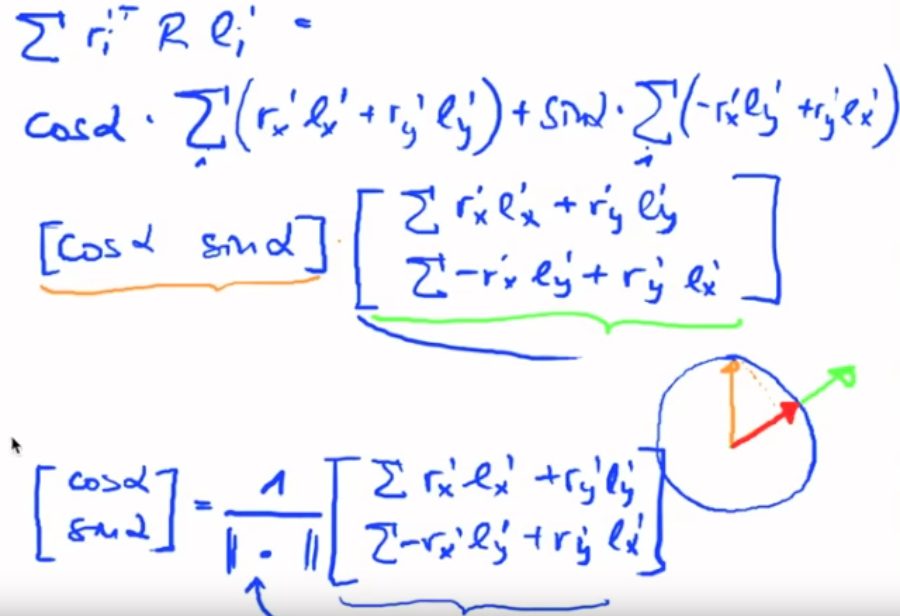 Σ rᵢ'ᵀ R lᵢ' =
cosα · Σᵢ (rₓ' lₓ' + r_y' l_y') + sinα · Σᵢ (-rₓ' l_y' + r_y' lₓ')
[cosα sinα] · [Σ rₓ' lₓ' + r_y' l_y'
Σ -rₓ' l_y' + r_y' lₓ']
[cosα
sinα] = 1 / ‖·‖ [Σ rₓ' lₓ' + r_y' l_y'
Σ -rₓ' l_y' + r_y' lₓ']